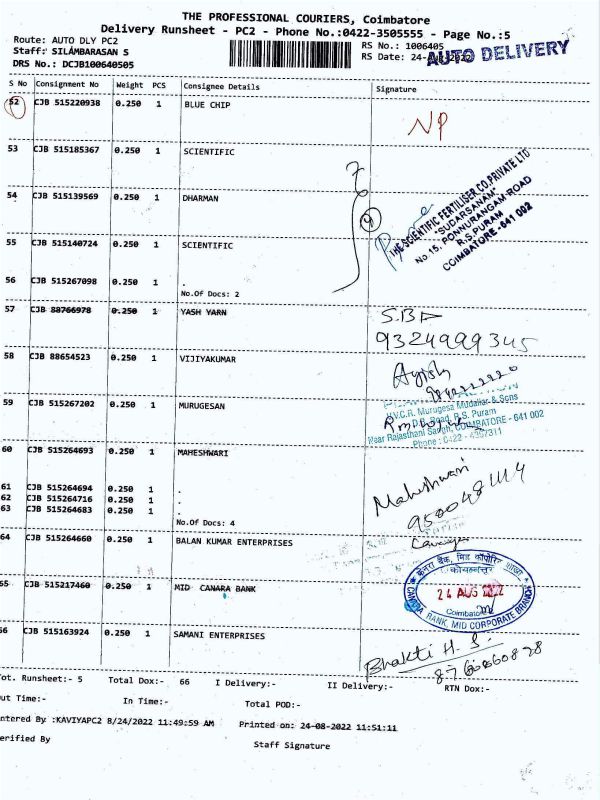 THE PROFESSIONAL COURIERS, Coimbatore
Delivery Runsheet - PC2 - Phone No.:0422-3505555 - Page No.:5
Route: AUTO DLY PC2
RS No.: 1006405
Staff: SILAMBARASAN S
RS Date: 24-
AUTO DELIVERY
DRS No.: DCJB100640505
S No Consignment No Weight PCS Consignee Details Signature
52 CJB 515220938 0.250 1 BLUE CHIP
NP
53 CJB 515185367 0.250 1 SCIENTIFIC
54 CJB 515139569 0.250 1 DHARMAN
THE SCIENTIFIC FERTILISER CO.PRIVATE LTD
"SUDARSANAM"
No.15, PONNURANGAM ROAD
R.S.PURAM
COIMBATORE-641 002
55 CJB 515140724 0.250 1 SCIENTIFIC
56 CJB 515267098 0.250 1 .
No.Of Docs: 2
57 CJB 88766978 0.250 1 YASH YARN
9324999345
58 CJB 88654523 0.250 1 VIJIYAKUMAR
59 CJB 515267202 0.250 1 MURUGESAN
V.C.R. Murugesa Mudaliar & Sons
D.B. Road, R.S. Puram
Near Rajasthani Sangh, COIMBATORE - 641 002
Phone : 0422 - 4307311
60 CJB 515264693 0.250 1 MAHESHWARI
Maheshwari
61 CJB 515264694 0.250 1 .
62 CJB 515264716 0.250 1 .
63 CJB 515264683 0.250 1 .
No.Of Docs: 4
64 CJB 515264660 0.250 1 BALAN KUMAR ENTERPRISES
केनरा बैंक, मिड कॉर्पोरेट शाखा
कोयम्बत्तूर
24 AUG 2022
Coimbatore
CANARA BANK, MID CORPORATE BRANCH
65 CJB 515217460 0.250 1 MID CANARA BANK
66 CJB 515163924 0.250 1 SAMANI ENTERPRISES
Bhakti H. S.
Tot. Runsheet:- 5 Total Dox:- 66 I Delivery:- II Delivery:- RTN Dox:-
Out Time:- In Time:- Total POD:-
Entered By :KAVIYAPC2 8/24/2022 11:49:59 AM Printed on: 24-08-2022 11:51:11
Verified By Staff Signature